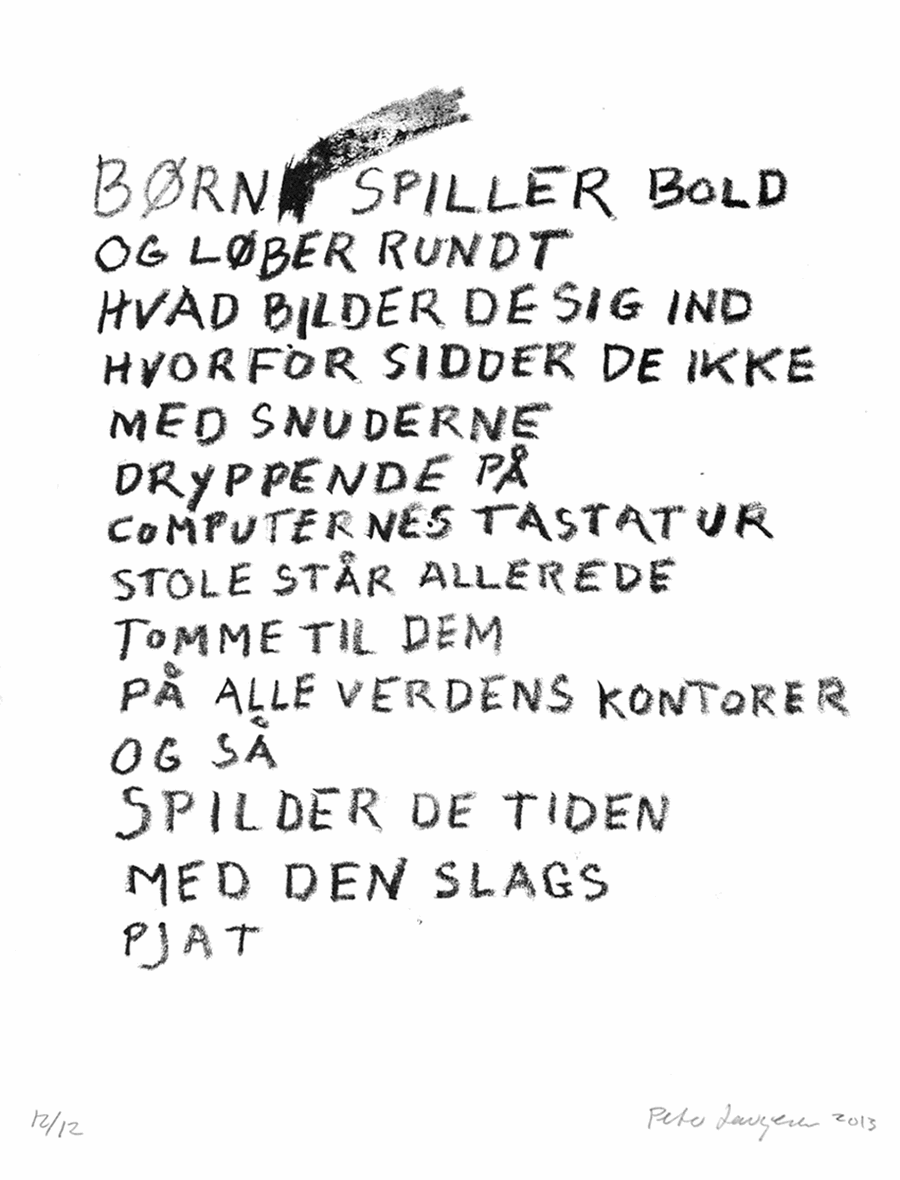 BØRN SPILLER BOLD
OG LØBER RUNDT
HVAD BILDER DE SIG IND
HVORFOR SIDDER DE IKKE
MED SNUDERNE
DRYPPENDE PÅ
COMPUTERNES TASTATUR
STOLE STÅR ALLEREDE
TOMME TIL DEM
PÅ ALLE VERDENS KONTORER
OG SÅ
SPILDER DE TIDEN
MED DEN SLAGS
PJAT
12/12 Peter 2013